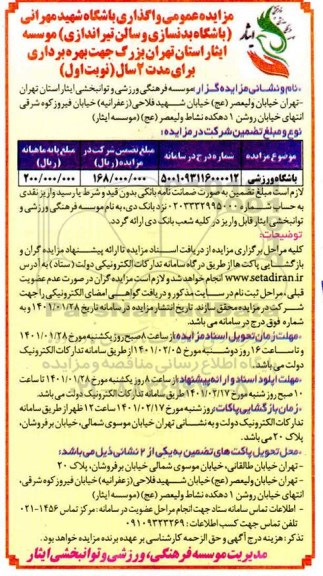 مزایده عمومی واگذاری باشگاه شهید مهرانی
(باشگاه بدنسازی و سالن تیراندازی) موسسه
ایثار استان تهران بزرگ جهت بهره برداری
برای مدت ۲ سال (نوبت اول)
ایثار
-نام و نشانی مزایده گزار: موسسه فرهنگی ورزشی و توانبخشی ایثار استان تهران
-تهران خیابان ولیعصر (عج) خیابان شهید فلاحی (زعفرانیه) خیابان فیروز کوه شرقی
انتهای خیابان روشن ۱ دهکده نشاط ولیعصر (عج) (موسسه ایثار)
نوع و مبلغ تضمین شرکت در مزایده:
موضوع مزایده | شماره درج در سامانه | مبلغ تضمین شرکت در مزایده (ریال) | مبلغ پایه ماهیانه (ریال)
باشگاه ورزشی | ۵۰۰۱۰۹۳۱۱۶۰۰۰۰۱۲ | ۱۶۸/۰۰۰/۰۰۰ | ۲۰۰/۰۰۰/۰۰۰
لازم است مبلغ تضمین به صورت ضمانت نامه بانکی بدون قید و شرط یا رسید واریز نقدی
به حساب شماره ۰۲۰۳۳۳۲۹۹۵۰۰۰ نزد بانک دی، به نام موسسه فرهنگی ورزشی و
توانبخشی ایثار قابل واریز در کلیه شعب بانک دی ارائه گردد.
توضیحات:
کلیه مراحل برگزاری مزایده از دریافت اسناد مزایده تا ارائه پیشنهاد مزایده گران و
بازگشایی پاکت ها از طریق درگاه سامانه تدارکات الکترونیکی دولت (ستاد) به آدرس
www.setadiran.ir انجام خواهد شد و لازم است مزایده گران در صورت عدم عضویت
قبلی، مراحل ثبت نام در سایت مذکور و دریافت گواهی امضای الکترونیکی را جهت
شرکت در مزایده محقق سازند. تاریخ انتشار مزایده در سامانه تاریخ ۱۴۰۱/۰۱/۲۸ و به
شماره فوق درج در سامانه می باشد.
-مهلت زمان تحویل اسناد مزایده از ساعت ۸ صبح روز یکشنبه مورخ ۱۴۰۱/۰۱/۲۸
و تا ساعت ۱۶ روز دوشنبه مورخ ۱۴۰۱/۰۲/۰۵ از طریق سامانه تدارکات الکترونیک
دولت می باشد.
-مهلت آپلود اسناد و ارائه پیشنهاد از ساعت ۸ روز یکشنبه مورخ ۱۴۰۱/۰۱/۲۸ تا ساعت
۱۰ صبح روز شنبه مورخ ۱۴۰۱/۰۲/۱۷ طریق سامانه تدارکات الکترونیک دولت می باشد.
-زمان بازگشایی پاکات: روز شنبه مورخ ۱۴۰۱/۰۲/۱۷ ساعت ۱۲ ظهر از طریق سامانه
تدارکات الکترونیک دولت و به نشانی تهران خیابان طالقانی، خیابان موسوی شمالی، خیابان برفروشان،
پلاک ۲۰ می باشد.
-محل تحویل پاکت های تضمین به یکی از ۲ نشانی ذیل می باشد:
- تهران خیابان طالقانی، خیابان موسوی شمالی، خیابان برفروشان، پلاک ۲۰
- تهران خیابان ولیعصر (عج) خیابان شهید فلاحی (زعفرانیه) خیابان فیروز کوه شرقی،
انتهای خیابان روشن ۱ دهکده نشاط ولیعصر (عج) (موسسه ایثار)
- اطلاعات تماس سامانه ستاد جهت انجام مراحل عضویت در سامانه: مرکز تماس ۱۴۵۶-۰۲۱
تلفن تماس جهت کسب اطلاعات: ۰۹۱۰۹۳۲۳۲۶۹
تذکر: هزینه درج آگهی و حق الزحمه کارشناسی بر عهده برنده مزایده خواهد بود.
مدیریت موسسه فرهنگی، ورزشی و توانبخشی ایثار